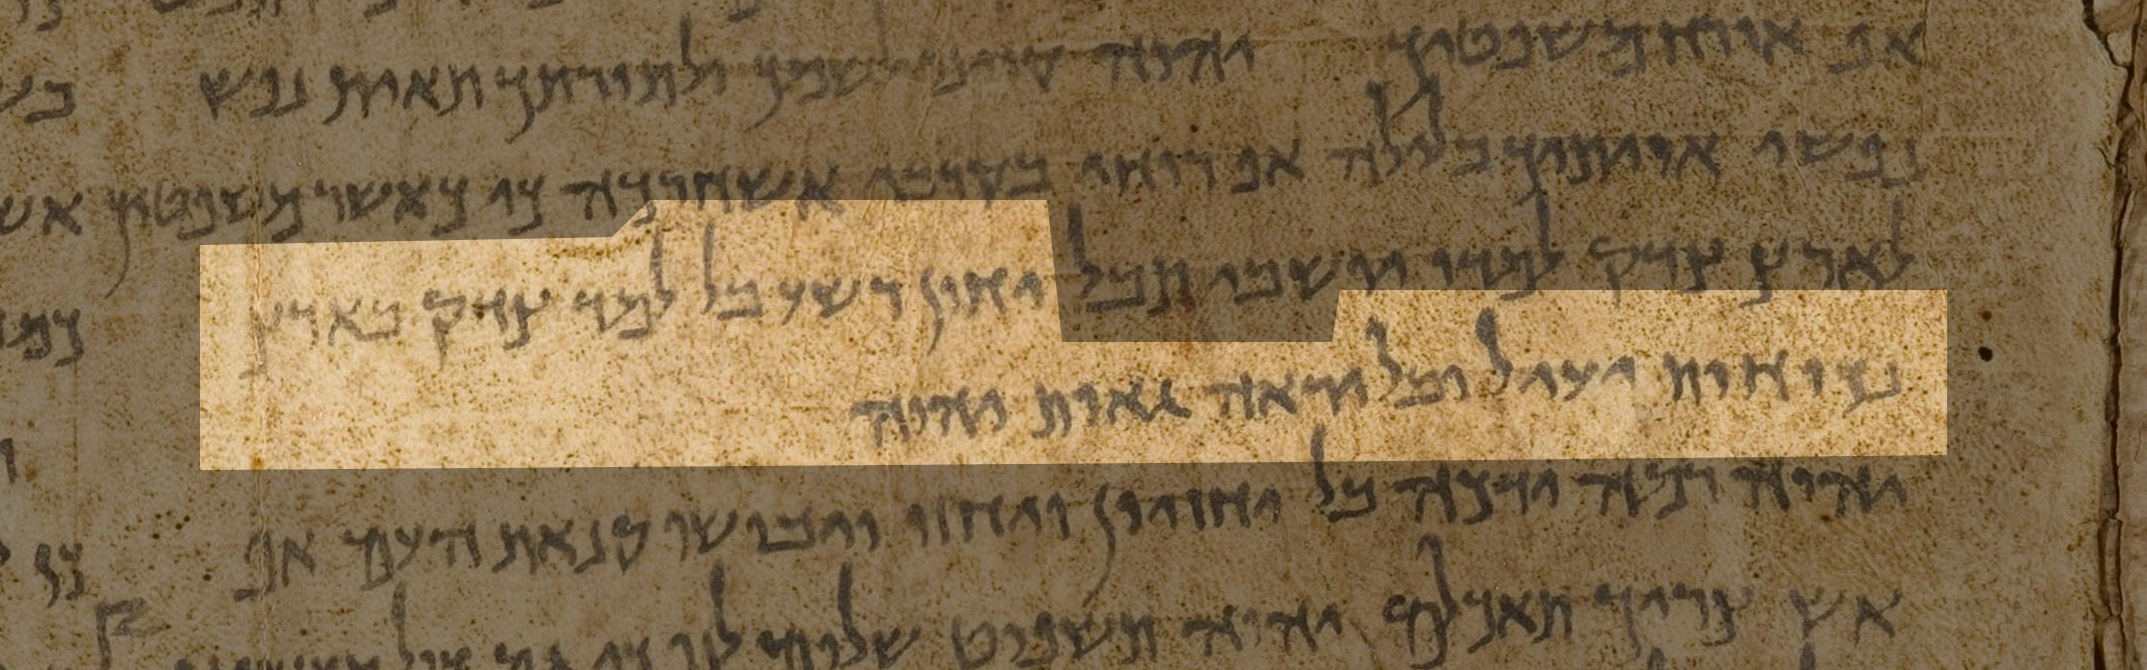 אף אורח משפטיך יהוה קוינו לשמך ולתורתך תאות נפש
נפשי אויתיך בלילה אף רוחי בקרבי אשחרכה כי כאשר משפטיך
לארץ צדק למדו יושבי תבל יחון רשע בל למד צדק בארץ
נכוחות יעול ובל יראה גאות יהוה
יהוה רמה ידכה בל יחזיון יחזו ויבושו קנאת העם אף
אש צריך תאכלם יהוה תשפוט שלום לנו כי גם